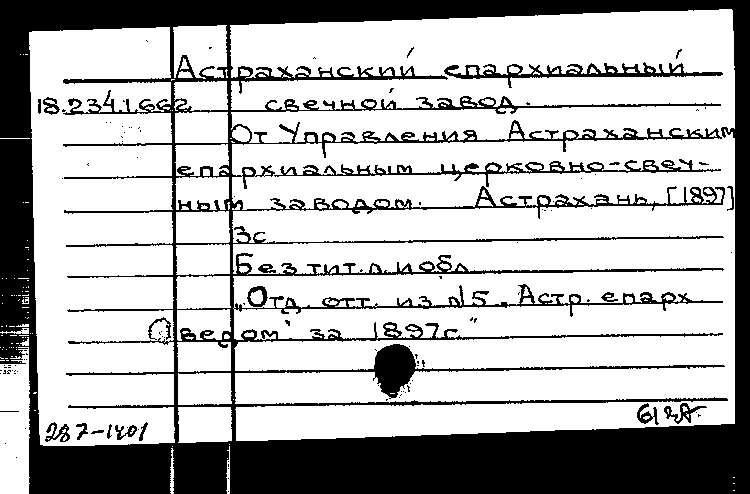 Астраханский епархиальный
18.234.1.662 свечной завод.
От Управления Астраханским
епархиальным церковно-свеч-
ным заводом. Астрахань, [1897]
3с.
Без тит. л. и обл.
„Отд. отт. из №5 „Астр. епарх
ведом" за 1897г."
287-1401